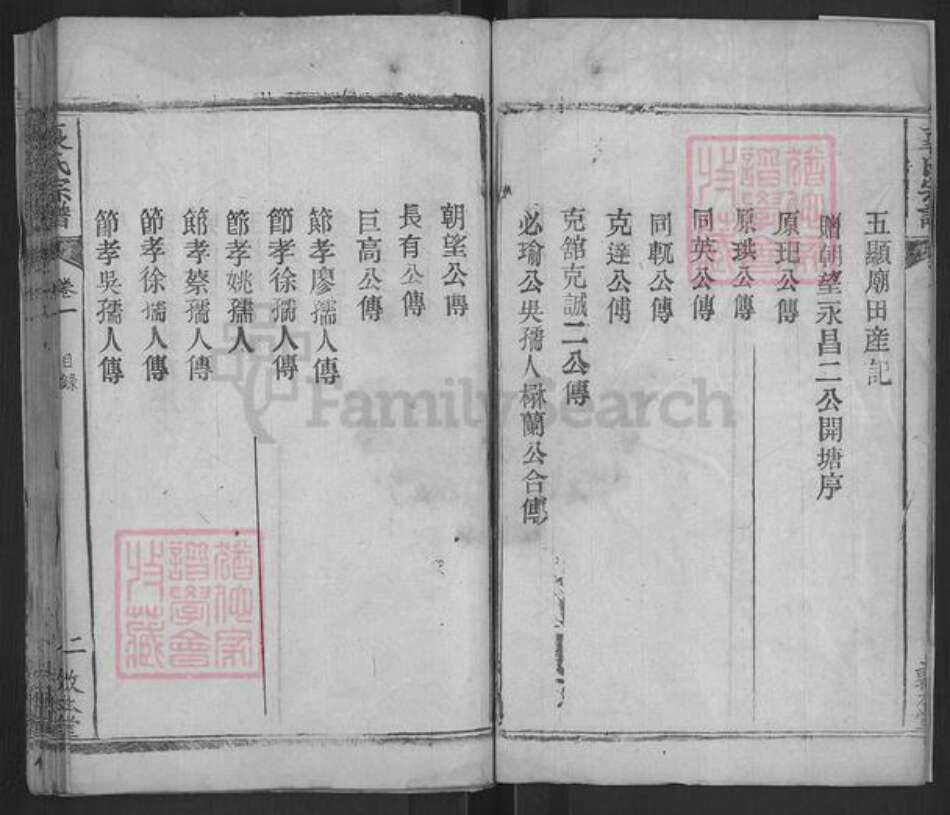 五顯廟田産記
贈朝望永昌二公開塘序
原玭公傳
原珙公傳
同英公傳
同軏公傳
克達公傳
克舘克誠二公傳
必瑜公吳孺人楙蘭公合傳
朝望公傳
長有公傳
巨高公傳
節孝廖孺人傳
節孝徐孺人傳
節孝姚孺人
節孝蔡孺人傳
節孝徐孺人傳
節孝吳孺人傳
氏宗譜
卷一
目錄
二
譜學會
收藏
FamilySearch